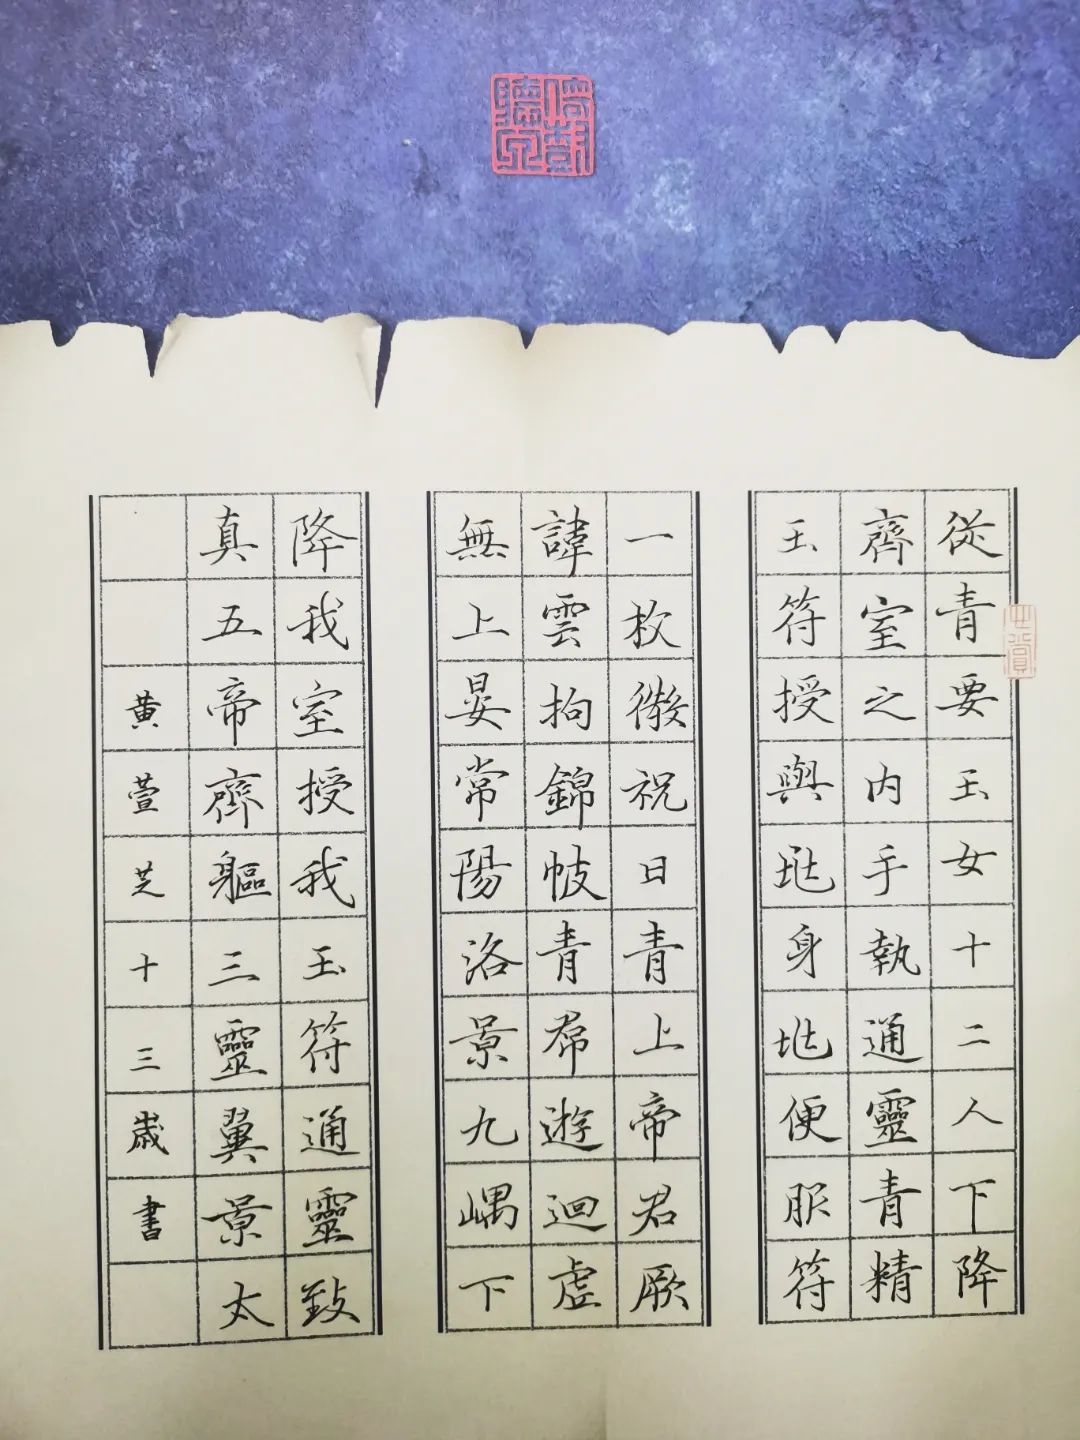 從青要玉女十二人下降
齊室之内手執通靈青精
玉符授與兆身兆便服符
一枚微祝曰青上帝君厥
諱雲拘錦帔青帬遊迴虛
無上晏常陽洛景九嵎下
降我室授我玉符通靈致
真五帝齊軀三靈翼景太
黄萱芝十三歲書